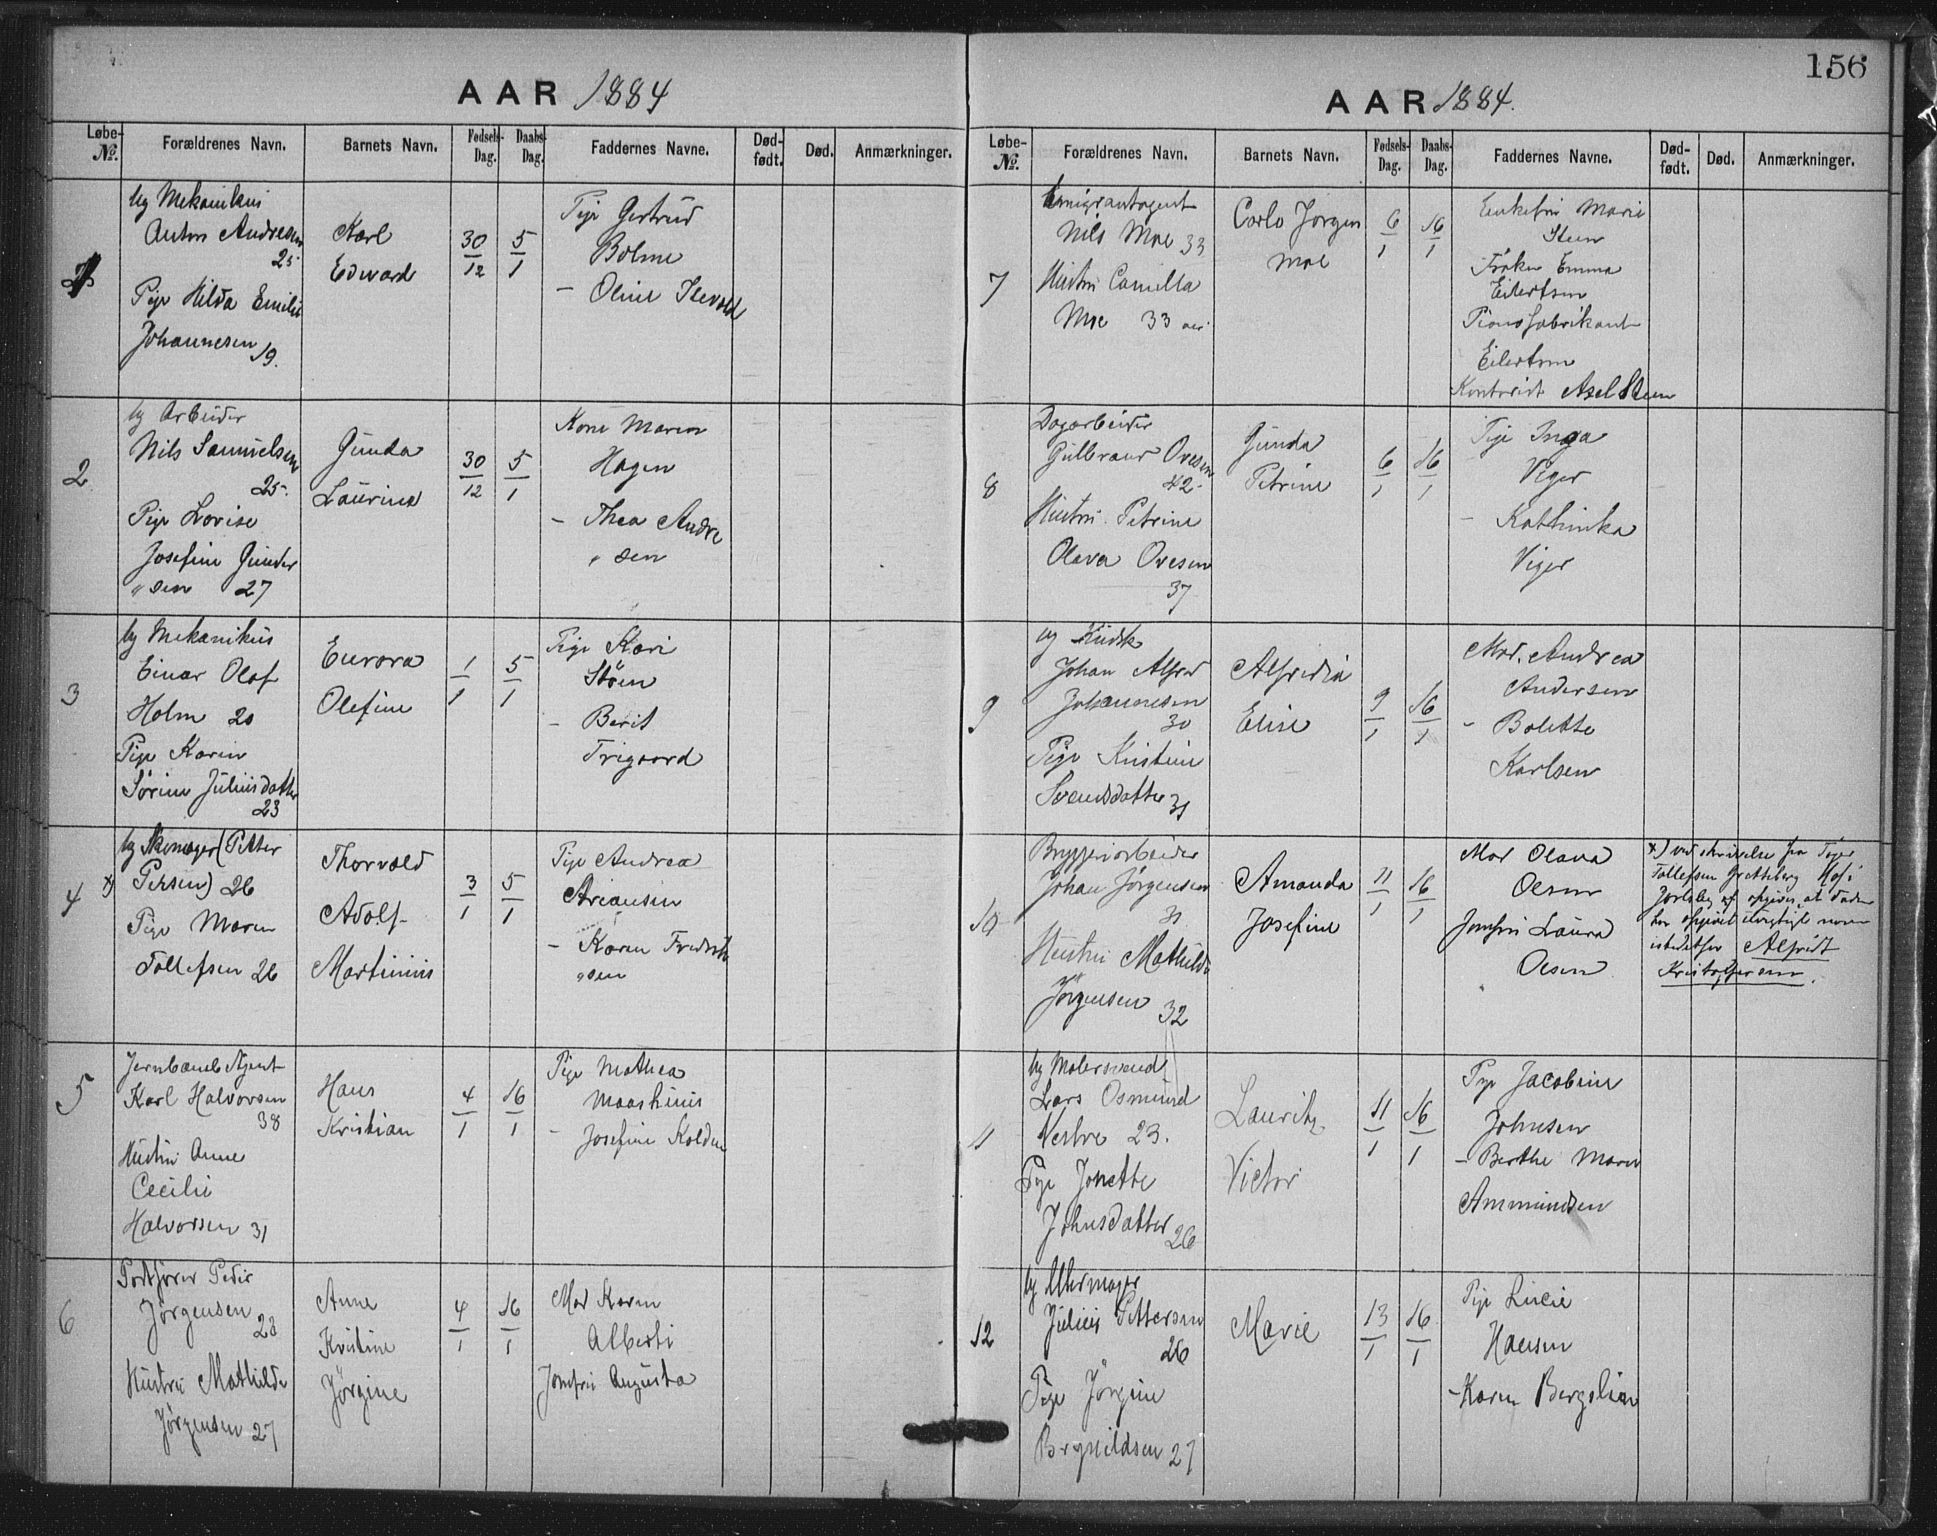 AAR 1884
Løbe- No.
Forældrenes Navn.
Barnets Navn.
Fødsels-Dag.
Daabs-Dag.
Faddernes Navne.
Død-født.
Død.
Anmærkninger.
1
ug Mekanikus
Anton Andresen
25
Pige Hilda Emilie
Johannesen 19.
Karl
Edward
30/12
5/1
Pige Gertrud
Bolme
– Oline
2
ug Arbeider
Nils Samuelsen
25.
Pige Lovise
Josefine Gunder
"sen 27
Gunda
Laurine
30/12
5/1
Kone Maren
Hagen
– Thea Andre
"sen
3
ug Mekanikus
Einar Olaf
Holm 20
Pige Karen
Sørine Juliusdatter
23
Eurora
Olefine
1/1
5/1
Pige Kari
Støen
– Berit
Trigaard
4
x)
ug Skomager (Petter
Persen) 26
Pige Maren
Tollefsen 26
Thorvald
Adolf
Martinius
3/1
5/1
Pige Andrea
Ariansen
– Karen Fredrik
"sen
5
Jernbane Agent
Karl Halvorsen
38
Hustru Anne
Cecilie
Halvorsen 31
Hans
Kristian
4/1
16/1
Pige Mathea
– Josefine Kolden
6
Peder
Jørgensen
28
Hustru Mathilde
Jørgensen 27
Anne
Kristine
Jørgine
4/1
16/1
Mad Karen
Alberti
Jomfru Augusta
156
AAR 1884.
Løbe- No.
Forældrenes Navn.
Barnets Navn.
Fødsels-Dag.
Daabs-Dag.
Faddernes Navne.
Død-født.
Død.
Anmærkninger.
7
Emigrantagent
Nils Moe 33
Hustru Camilla
Moe 33 aar.
Carlo Jørgen
Moe
6/1
16/1
Enkefru Marie
Steen
Frøken Emma
Eilertsen
Pianofabrikant
Eilertsen
Kontorist Axel Steen
8
Dagarbeider
Gulbrand Ovesen
42
Hustru Petrine
Olava Ovesen
37
Gunda
Petrine
6/1
16/1
Pige Inga
Viger
– Kathinka
Viger
9
ug Kudsk
Johan Alfred
Johannesen
30
Pige Kristine
Svendsdatter 31
Alfredia
Elise
9/1
16/1
Mad. Andrea
Andersen
– Bolette
Karlsen
10
Bryggeriarbeider
Johan Jørgensen
31
Hustru Mathilde
Jørgensen 32
Amanda
Josefine
11/1
16/1
Mad Olava
Olsen
Jomfru Laura
Olsen
x) ved skrivelse fra Pige
Tollefsen
opgives at Faderen
har opgivet urigtigt navn
istedetfor Alfrid
Kristoffersen.
11
ug Malersvend
Lars Osmund
Nestve 23.
Pige Jonette
Johnsdatter 26
Lauritz
Victor
11/1
16/1
Pige Jacobine
Johnsen
– Berthe Maren
Ammundsen
12
ug Uhrmager
Julius Pettersen
26
Pige Jørgine
Brynildsen 27
Marie
13/1
16/1
Pige Lucie
Hansen
– Karen Bergslien